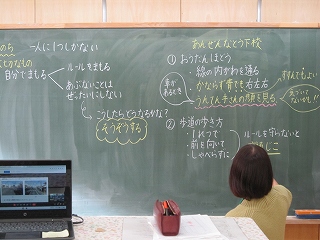 一人に1つしかない
自分でまもる
・ルールをまもる
・あぶないことは
ぜったいにしない
↳こうしたらどうなるかな?
そうぞうする
あんぜんなとう下校
① おうだんほどう
・線の内がわを通る
・かならず青でも右左右
・うんてん手さんの顔を見る
車が
来るとき
気づいて
ないかも!!
② 歩道の歩き方
・1れつで
・前を向いて
・しゃべらずに
ルールを守らないと